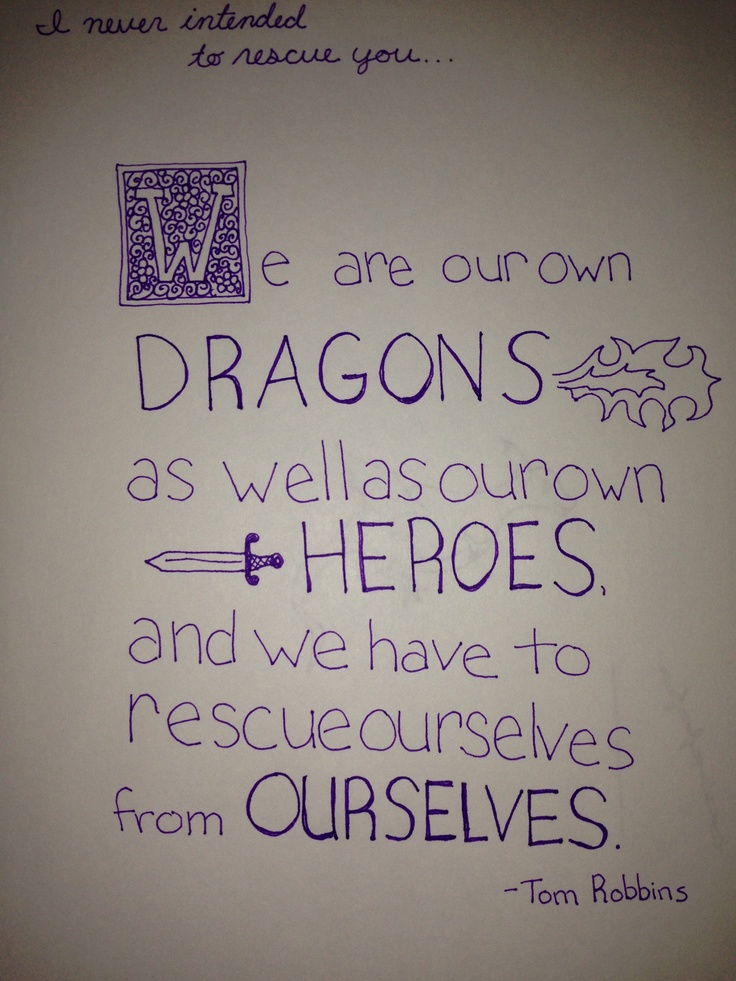 I never intended
to rescue you...
We are our own
DRAGONS
as well as our own
HEROES,
and we have to
rescue ourselves
from OURSELVES.
-Tom Robbins